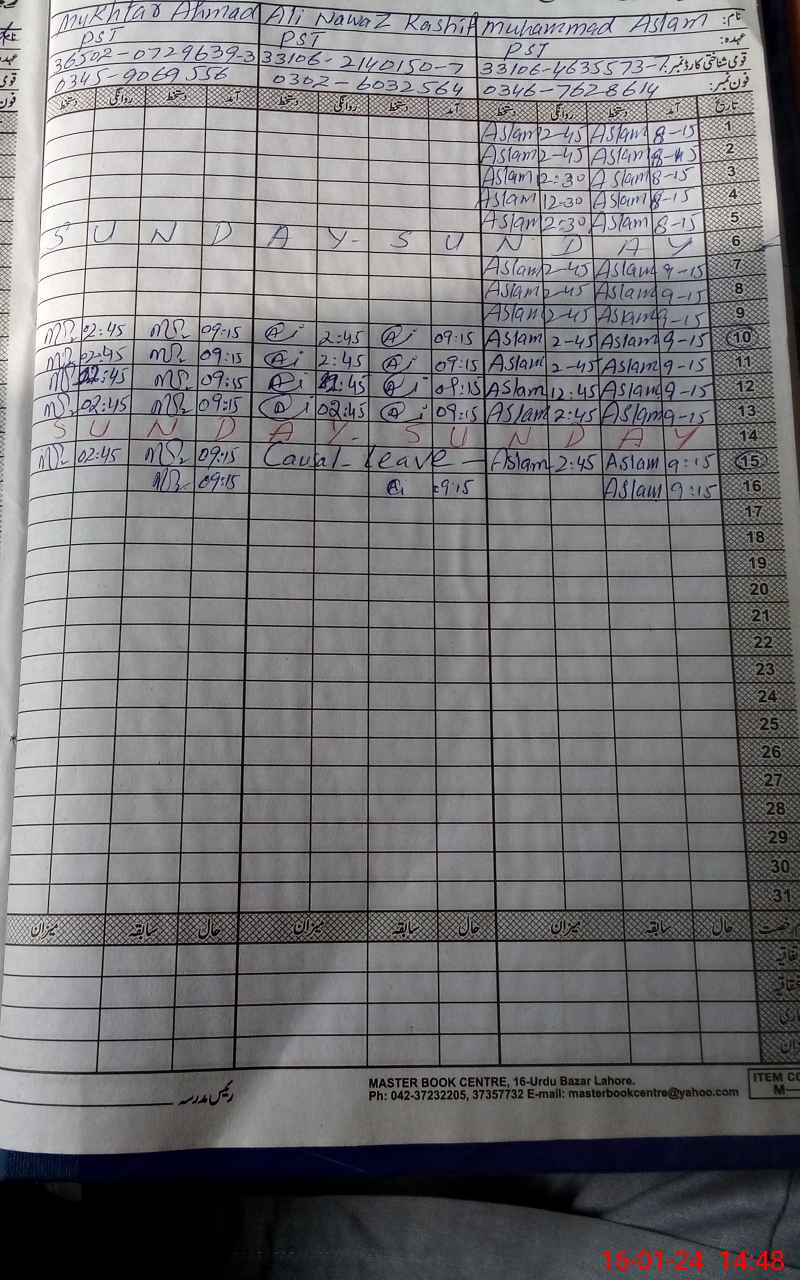 Mukhtar Ahmad Ali Nawaz Kashif Muhammad Aslam نام:
PST PST PST عہدہ:
36502-0729639-3 33106-2140150-7 33106-4635573- قومی شناختی کارڈ نمبر:
0345-9069556 0302-6032564 0346-7628614 فون نمبر:
دستخط روانگی دستخط آمد دستخط روانگی دستخط آمد دستخط روانگی دستخط آمد تاریخ
Aslam 2-45 Aslam 8-15 1
Aslam 2-45 Aslam 8-15 2
Aslam 12:30 Aslam 8-15 3
Aslam 12-30 Aslam 8-15 4
Aslam 2:30 Aslam 8-15 5
S U N D A Y- S U N D A Y 6
Aslam 2-45 Aslam 9-15 7
Aslam 2-45 Aslam 9-15 8
Aslam 2-45 Aslam 9-15 9
02:45 09:15 2:45 09:15 Aslam 2-45 Aslam 9-15 10
02:45 09:15 2:45 09:15 Aslam 2-45 Aslam 9-15 11
:45 09:15 :45 09:15 Aslam 12:45 Aslam 9-15 12
02:45 09:15 02:45 09:15 Aslam 2:45 Aslam 9-15 13
S U N D A Y- S U N D A Y 14
02:45 09:15 Causal-leave- Aslam 2:45 Aslam 9:15 15
09:15 09:15 Aslam 9:15 16
17
18
19
20
21
22
23
24
25
26
27
28
29
30
31
میزان سابقہ حال میزان سابقہ حال میزان سابقہ حال
رئیس مدرسہ
MASTER BOOK CENTRE, 16-Urdu Bazar Lahore.
Ph: 042-37232205, 37357732 E-mail: masterbookcentre@yahoo.com
ITEM
M—
16-01-24 14:48